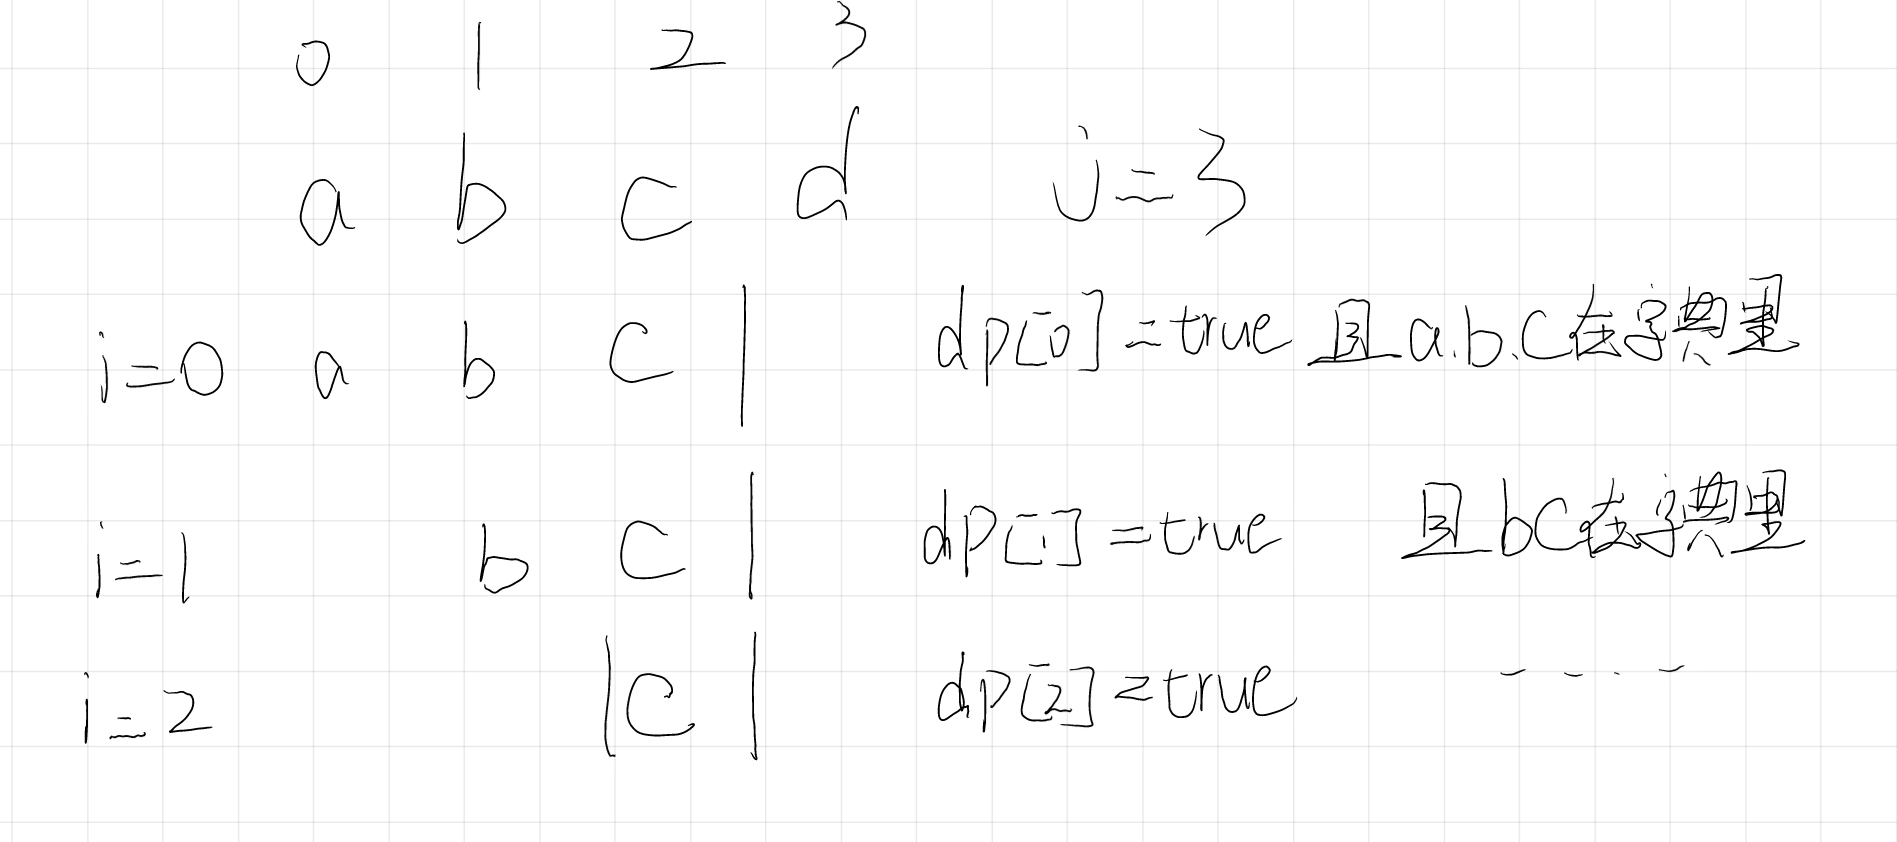 0 1 2 3
a b c d j=3
i=0 a b c | dp[0]=true 且a.b.c在字典里
i=1 b c | dp[1]=true 且bc在字典里
i=2 |c| dp[2]=true ----